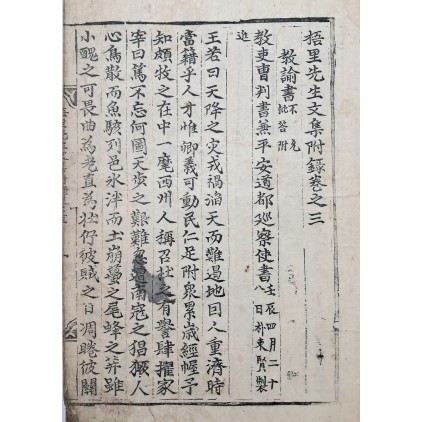 梧里先生文集附錄卷之三
教諭書不允批答附
教吏曹判書兼平安道都巡察使書壬辰四月二十八日朴東賢製
進
王若曰天降之灾戎禍滔天而難遏地回人重濟時
當藉乎人才惟卿義可動民仁足附衆累歲經幄予
知頗牧之在中一麾西州人稱召杜之有譽肆擢冢
宰曰篤不忘何圖天步之艱難忽遭南寇之猖獗人
心鳥散而魚駭列邑氷泮而土崩蠆之尾蜂之芥雖
小醜之可畏曲為老直為壯佇彼賊之日凋睠彼關